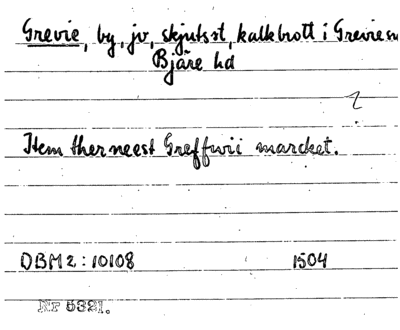 Grevie, by, jv, skjutsst, kalkbrott i Grevie sn
Bjäre hd
Item ther neest Greffwii marcket.
DBM 2:10108 1504
Nr 5321.